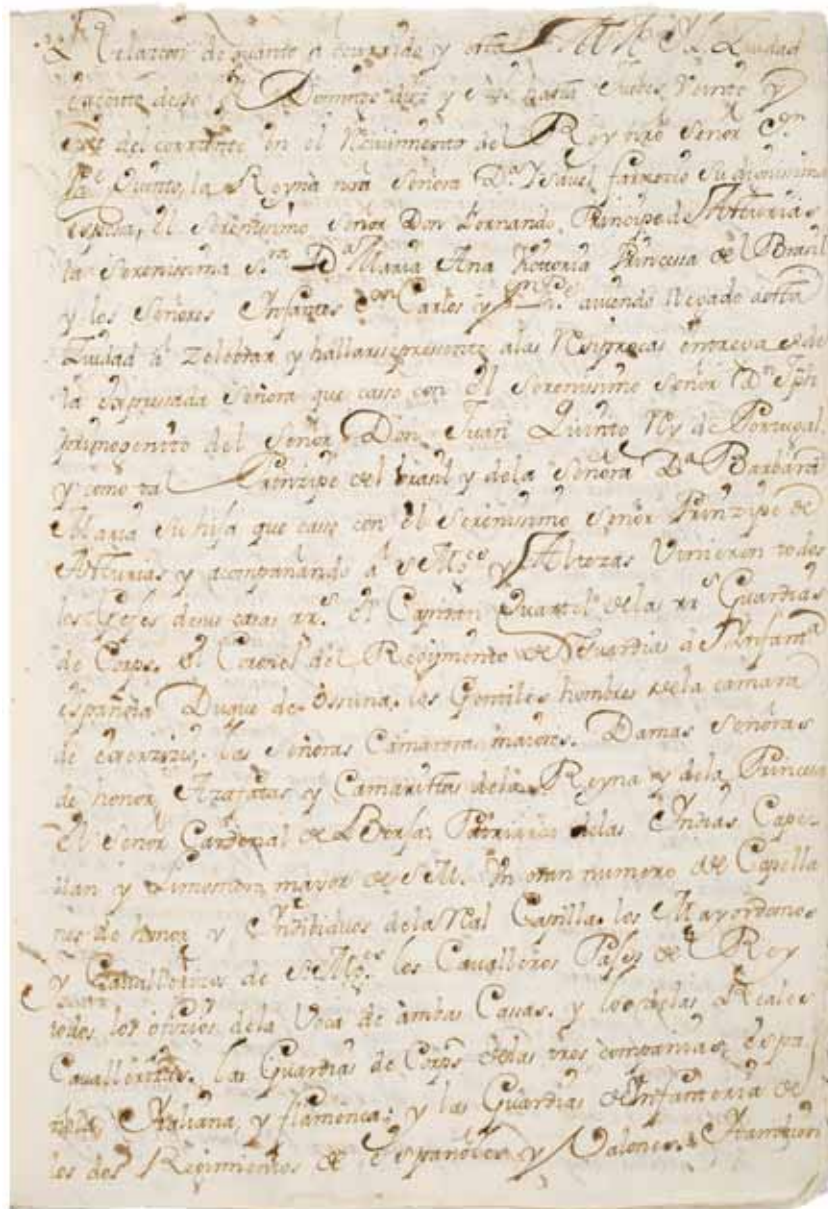 Relacion de quanto a ocurrido y esta M. N. Y L. Ciudad
desde el Domingo diez y seis hasta Jueves Veinte y
del corriente en el Recivimiento del Rey nrō Señor
Quinto, la Reyna nrā Señora D.ª Ysavel farnecio su dignissima
esposa, el Serenissimo Señor Don Fernando, Principe de Asturias
la Serenissima S.ra D.ª Maria Ana Victoria Princessa del Brasil
y los Señores Infantes Carlos y aviendo llegado a esta
Ciudad a zelebrar y hallarse presente a las Resiprocas entregas de
la expressada Señora que casso con el Serenissimo Señor D.n Jph
primogenito del Señor Don Juan Quinto Rey de Portugal
y como tal Prinzipe del brasil y de la Señora D.ª Barbara
Maria su hija que casse con el Serenissimo Señor Prinzipe de
Asturias y acompañando a S. Mg.es y Altezas Vinieron todos
los Gefes de sus casas rr.s el Capitan de las rr.s Guardias
de Corps. el Coronel del Regimento de Guardias de Ynfant.a
española Duque de Ossuna. los Gentiles hombres de la camara
de las Señoras Camareras maiores. Damas Señoras
de honor, Azafatas y Camaristas de la Reyna y de la Princesa
el Señor Cardenal de Borja. Patriarca de las Yndias Cape
llan y Limosnero maior de S. M. Un gran numero de Capella
nes de honor y Yndibiduos de la Real Capilla. los Mayordomos
y Cavallerizos de S. Mg.es los Cavalleros Pajes del Rey
todos los oficios de la Voca de ambas Cassas. y los de las Reales
Cavallerizas. las Guardias de Corps de las tres companias, espa
ñola, Ytaliana, y flamenca; y las Guardias de Infanteria de
los dos Regimientos de Españoles y Valones. Tambien